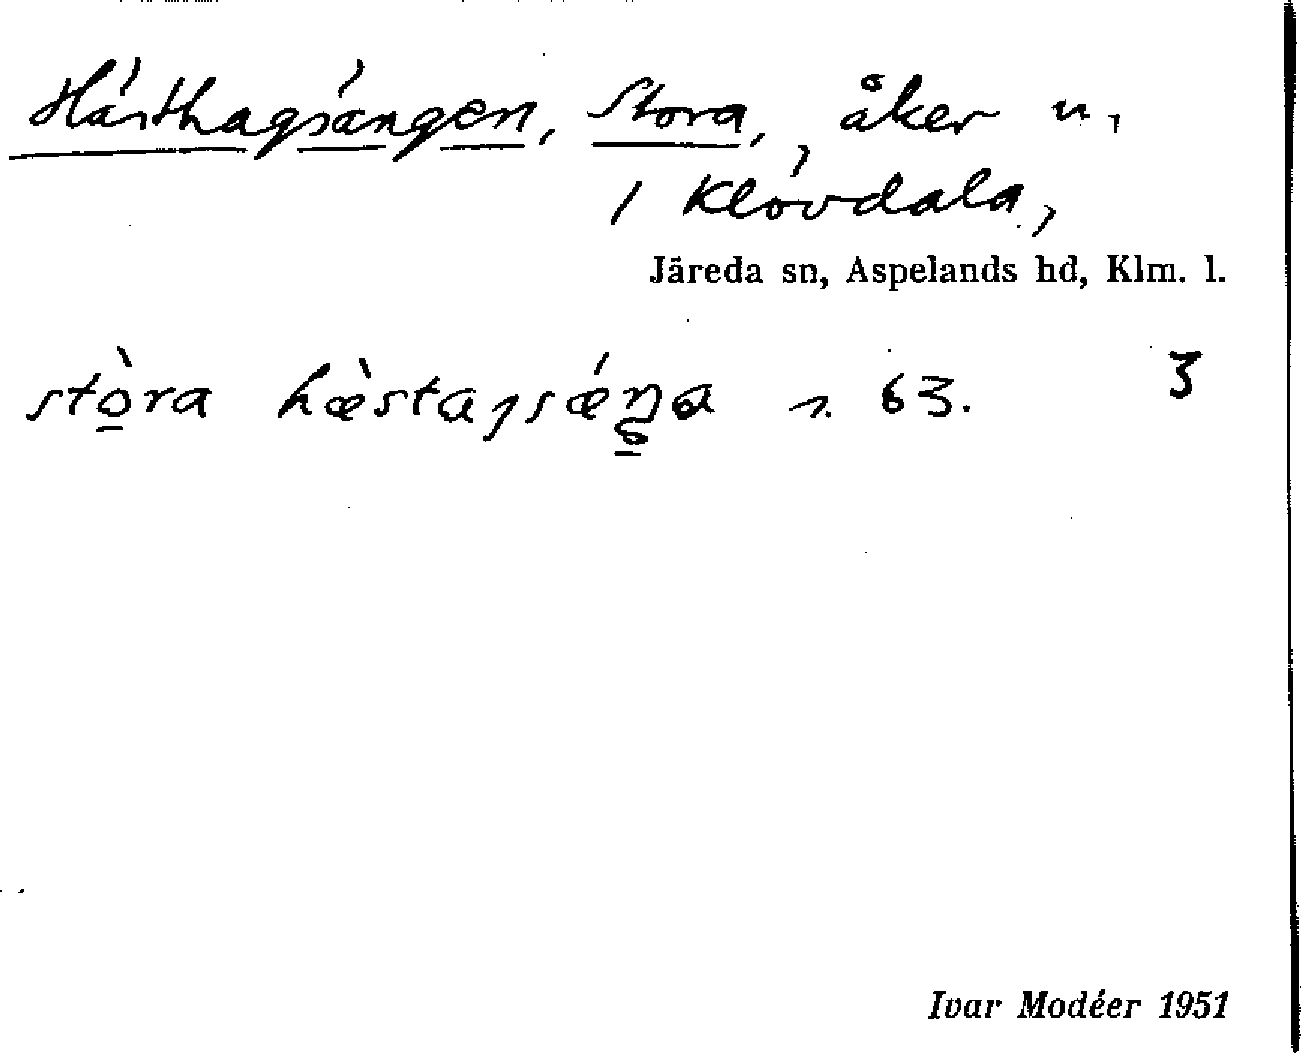 Hästhagsängen, Stora, åker n.
1 Klövdala,
Järeda sn, Aspelands hd, Klm. l.
stòra hæ̀stagsǽŋa n. 63. 3
Ivar Modéer 1951